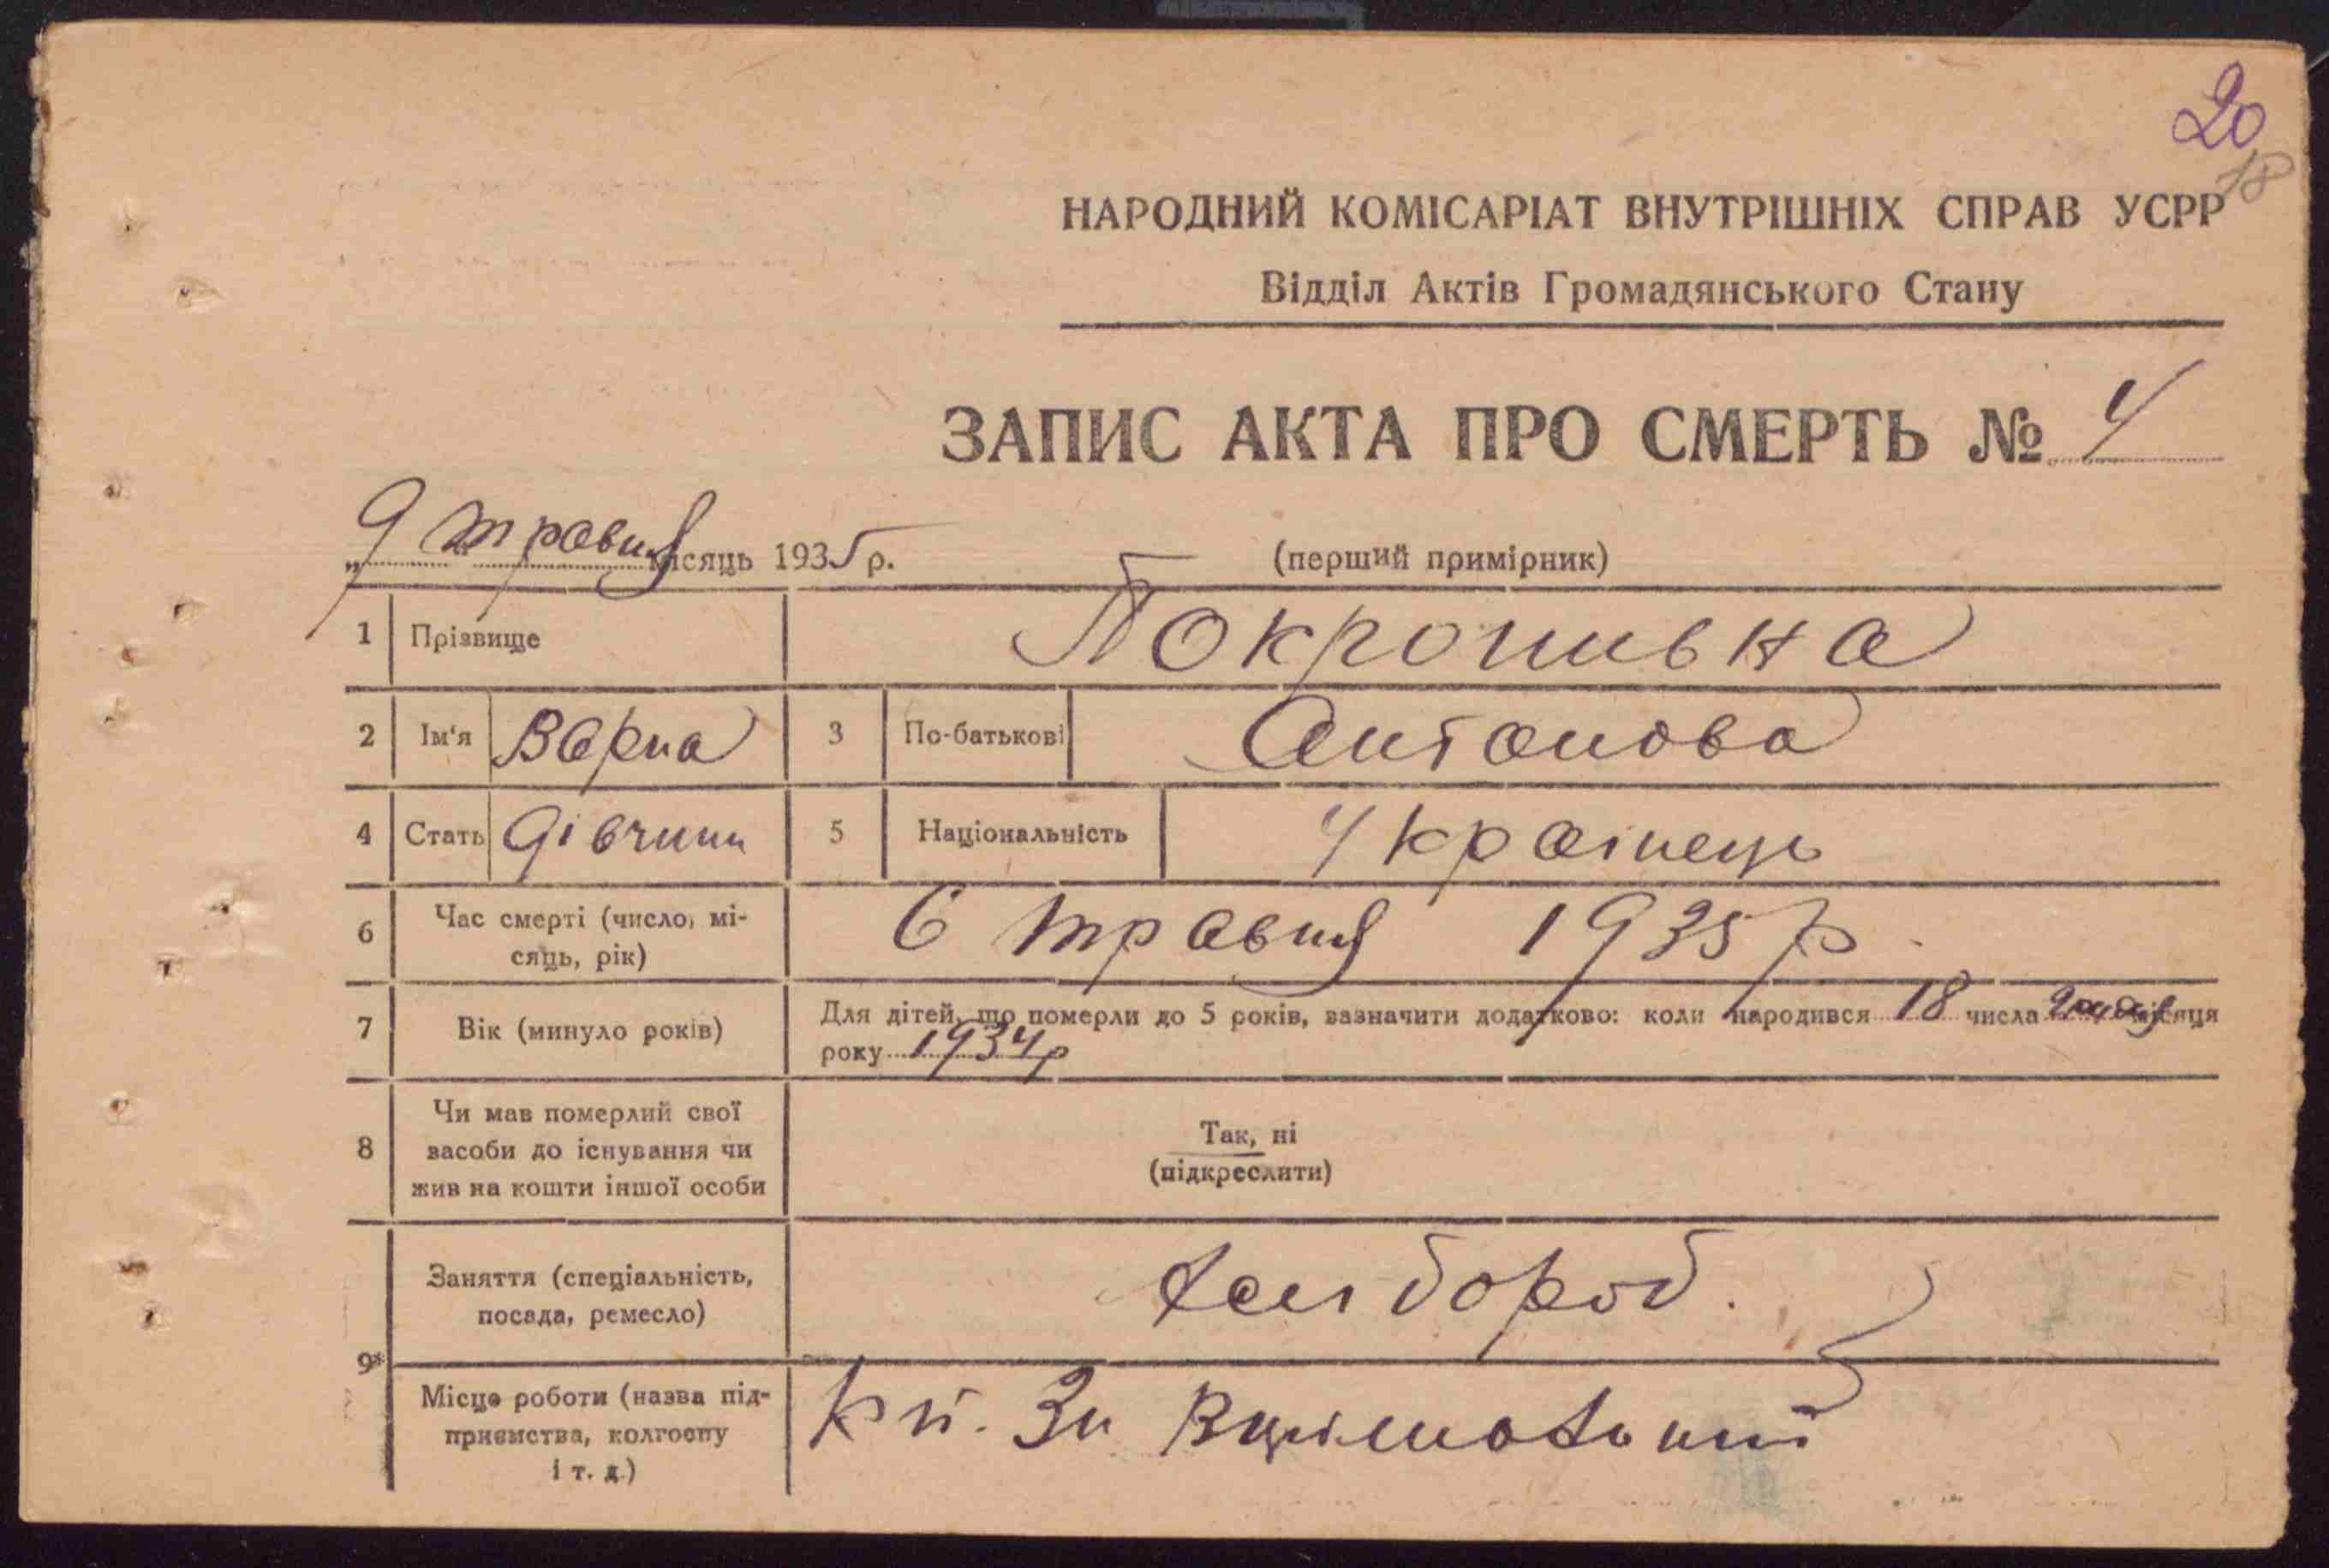 20
18
НАРОДНИЙ КОМІСАРІАТ ВНУТРІШНІХ СПРАВ УСРР
Відділ Актів Громадянського Стану
ЗАПИС АКТА ПРО СМЕРТЬ № 4
„9“ травня місяць 1935 р.
(перший примірник)
1 Прізвище Покропивна
2 Ім'я Варка 3 По-батькові Антонова
4 Стать Дівчини 5 Національність Українець
6 Час смерті (число, мі-
сяць, рік) 6 травня 1935 р.
7 Вік (минуло років) Для дітей, що померли до 5 років, зазначити додатково: коли народився 18 числа місяця
року 1934р
8 Чи мав померлий свої
засоби до існування чи
жив на кошти іншої особи
Так, ні
(підкреслити)
9 Заняття (спеціальність,
посада, ремесло)
Місце роботи (назва під-
приємства, колгоспу
і т. д.)